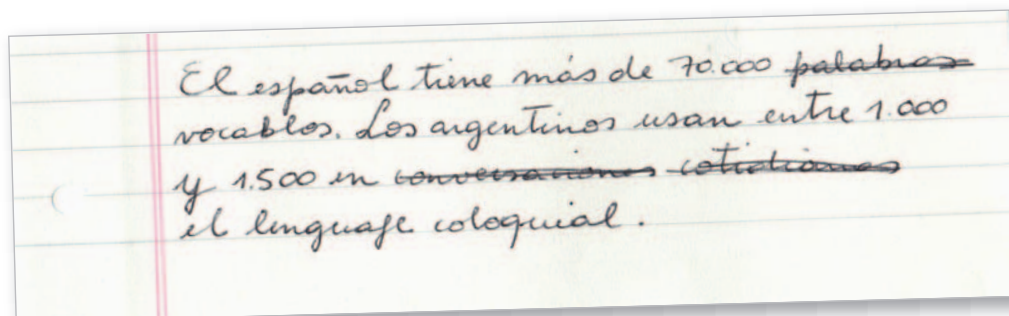 El español tiene más de 70.000 palabras
vocablos. Los argentinos usan entre 1.000
y 1.500 en conversaciones cotidianas
el lenguaje coloquial.